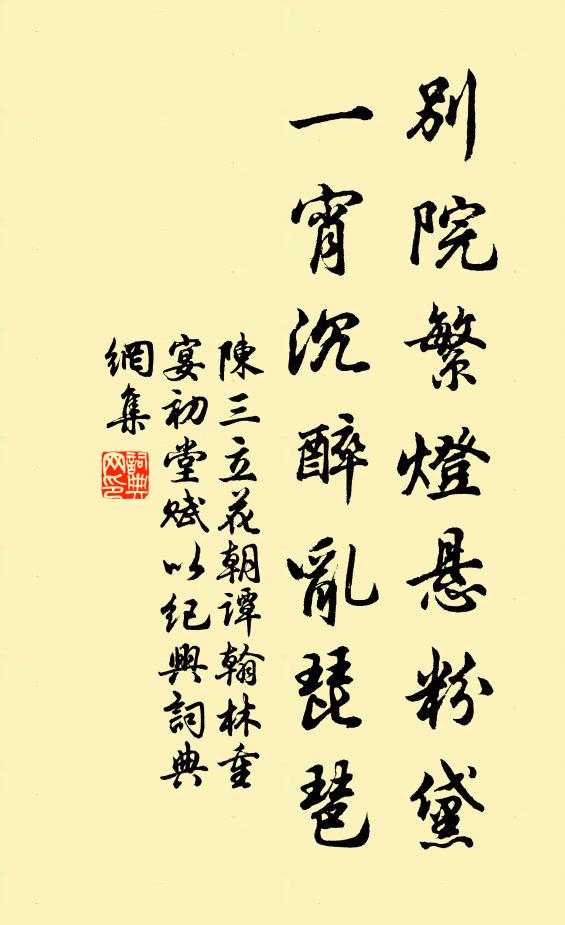 別院繁燈悬粉黛
一宵沉醉亂琵琶
陳三立花朝譚翰林重
宴初堂賦以紀興詞典
網集
詞典網印